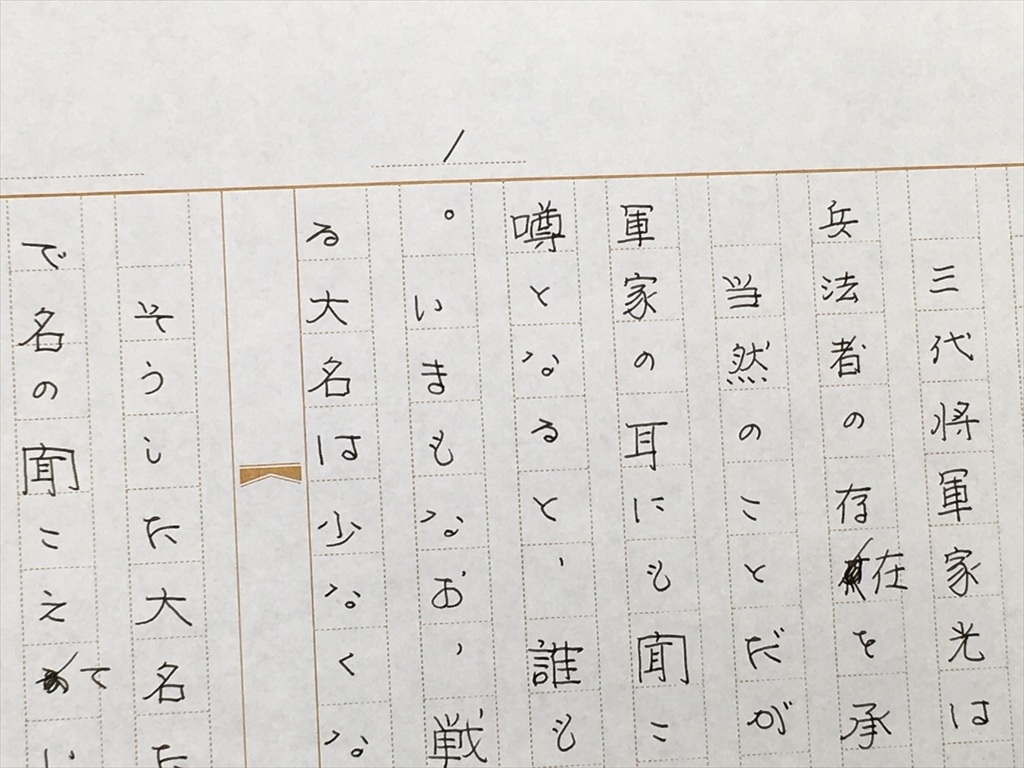 三代将軍家光は
兵法者の存在を承
当然のことだが
軍家の耳にも聞こ
噂となると、誰も
。いまもなお、戦
る大名は少なくな
そうした大名た
で名の聞こえてい